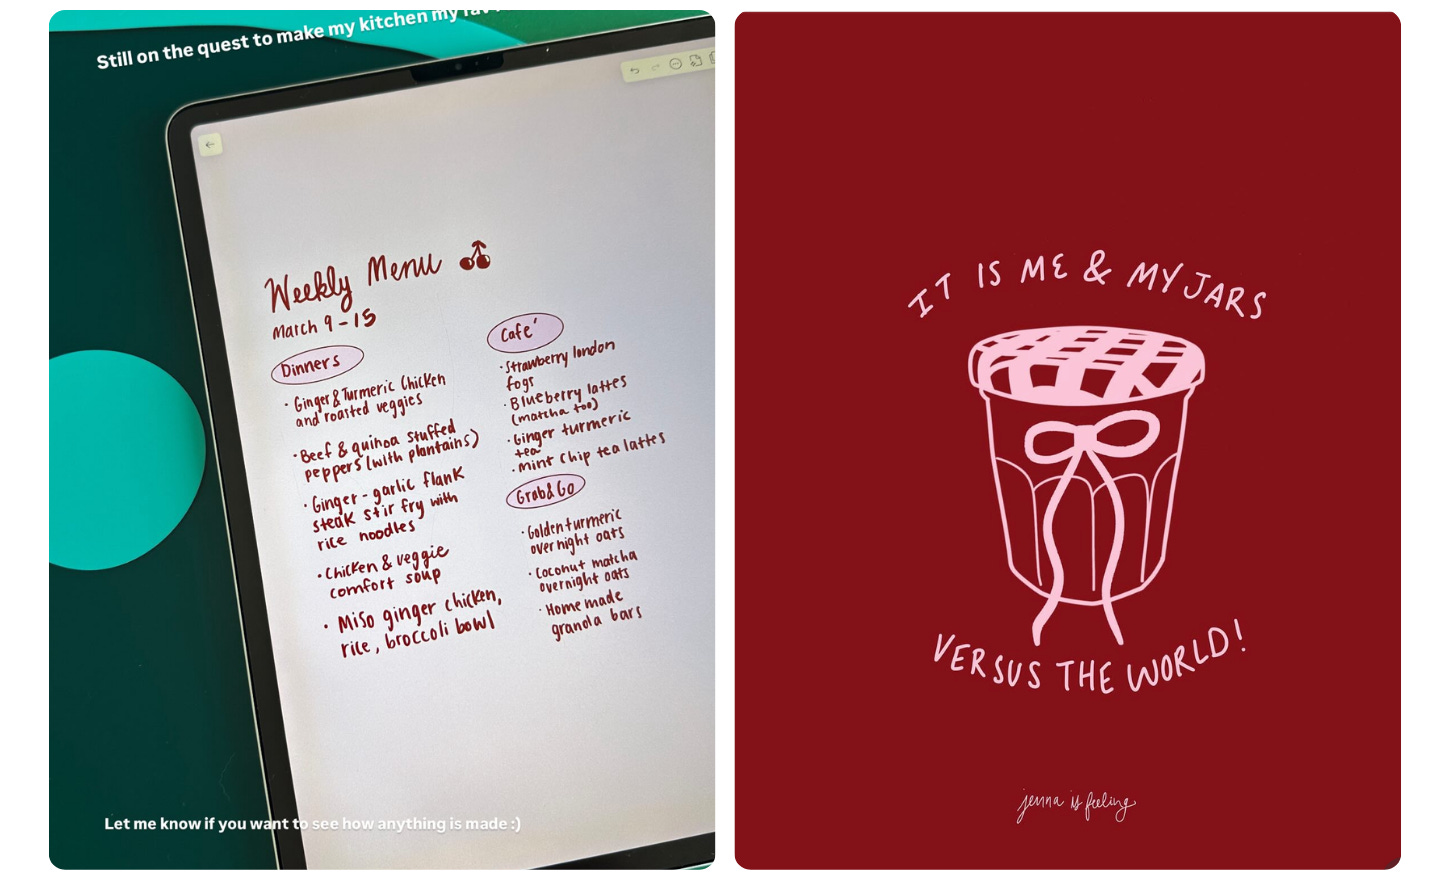 Still on the quest to make my kitchen my fav
Weekly Menu
March 9-15
Dinners
· Ginger & Turmeric Chicken
and roasted veggies
· Beef & quinoa stuffed
peppers (with plantains)
· Ginger-garlic flank
steak stir fry with
rice noodles
· Chicken & veggie
comfort soup
· Miso ginger chicken,
rice, broccoli bowl
Cafe'
· Strawberry london
fogs
· Blueberry lattes
(matcha too)
· Ginger turmeric
tea
· mint chip tea lattes
Grab&Go
· Golden turmeric
overnight oats
· Coconut matcha
overnight oats
· Homemade
granola bars
Let me know if you want to see how anything is made :)
IT IS ME & MY JARS
VERSUS THE WORLD!
jenna is feeling